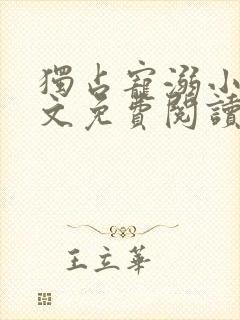 獨占寵溺小
文免費閱讀
王立華